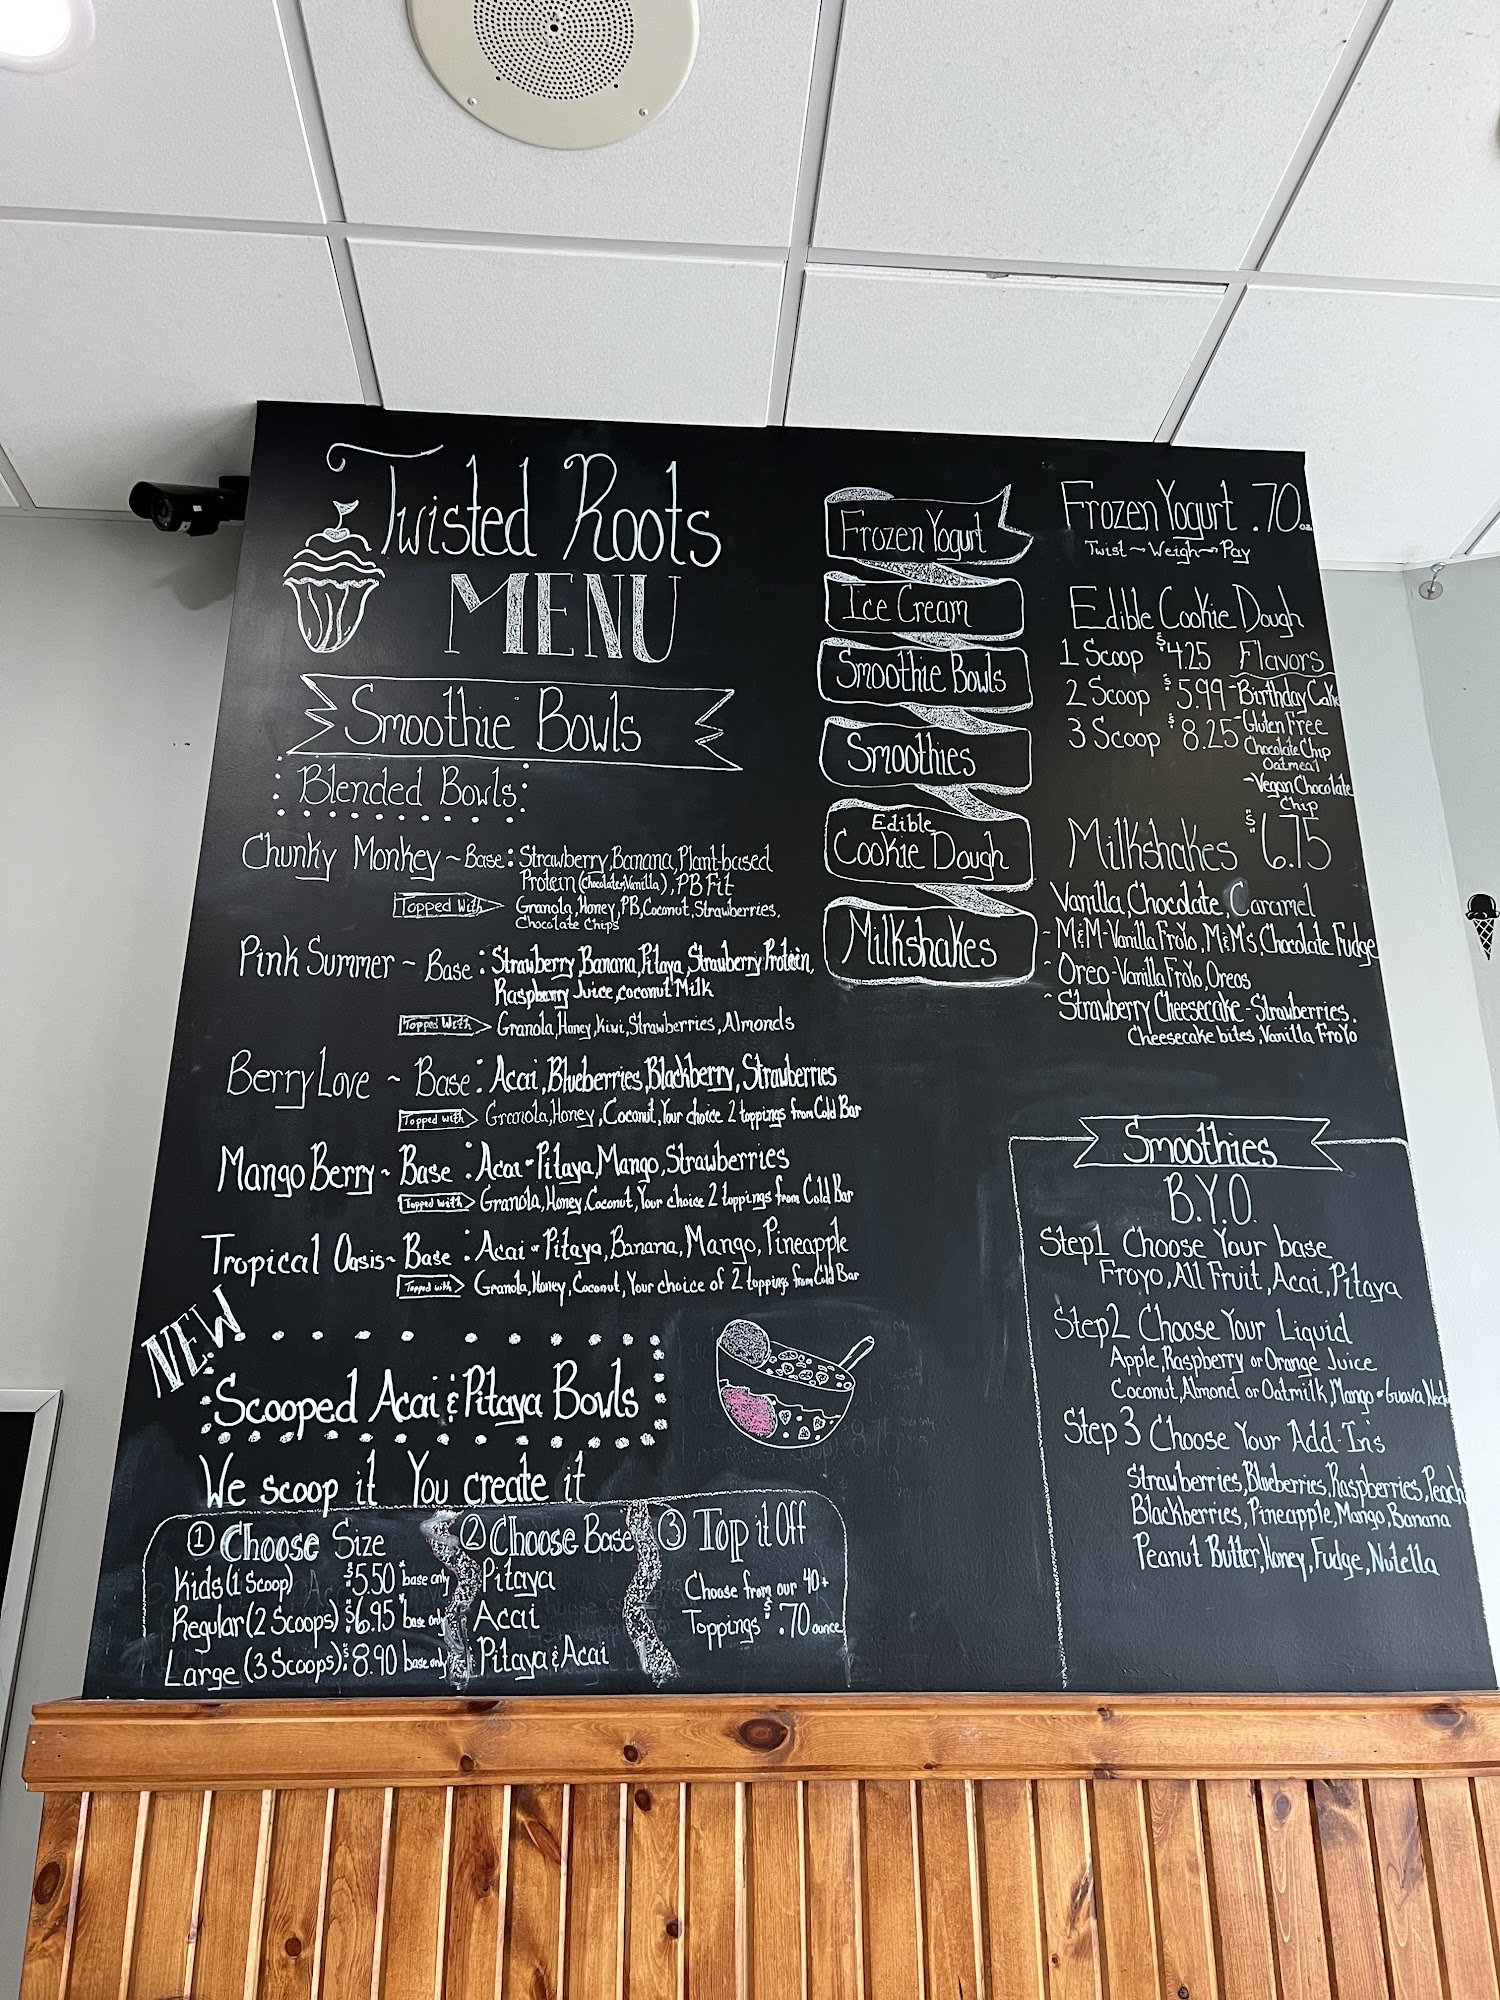 Twisted Roots
MENU
Smoothie Bowls
Blended Bowls
Chunky Monkey ~ Base: Strawberry, Banana, Plant-based
Protein (chocolate, Vanilla), PB Fit
Topped With
Granola, Honey, PB, Coconut, Strawberries,
Chocolate Chips
Pink Summer ~ Base: Strawberry, Banana, Pitaya, Strawberry Protein,
Raspberry Juice, coconut Milk
Topped With Granola, Honey, Kiwi, Strawberries, Almonds
Berry Love ~ Base: Acai, Blueberries, Blackberry, Strawberries
Topped with Granola, Honey, Coconut, Your choice 2 toppings from Cold Bar
Mango Berry ~ Base: Acai or Pitaya, Mango, Strawberries
Topped with Granola, Honey, Coconut, Your choice 2 toppings from Cold Bar
Tropical Oasis ~ Base: Acai or Pitaya, Banana, Mango, Pineapple
Topped with Granola, Honey, Coconut, Your choice of 2 toppings from Cold Bar
NEW
Scooped Acai & Pitaya Bowls
We scoop it You create it
① Choose Size
Kids (1 Scoop) $5.50 *base only
Regular (2 Scoops) $6.95 *base only
Large (3 Scoops) $8.90 base only
② Choose Base
Pitaya
Acai
Pitaya & Acai
③ Top it Off
Choose from our 40+
Toppings $.70 ounce
Frozen Yogurt
Ice Cream
Smoothie Bowls
Smoothies
Edible
Cookie Dough
Milkshakes
Frozen Yogurt .70 oz.
Twist ~ Weigh ~ Pay
Edible Cookie Dough
1 Scoop $4.25
2 Scoop $5.99
3 Scoop $8.25
Flavors
-Birthday Cake
-Gluten Free
Chocolate Chip
Oatmeal
-Vegan Chocolate
Chip
Milkshakes $6.75
Vanilla, Chocolate, Caramel
~ M&M-Vanilla FroYo, M&M's, Chocolate Fudge
~ Oreo-Vanilla FroYo, Oreos
~ Strawberry Cheesecake-Strawberries.
Cheesecake bites, Vanilla FroYo
Smoothies
B.Y.O.
Step1 Choose Your base
Froyo, All Fruit, Acai, Pitaya
Step2 Choose Your Liquid
Apple, Raspberry or Orange Juice
Coconut, Almond or Oatmilk, Mango or Guava
Step 3 Choose Your Add-Ins
Strawberries, Blueberries, Raspberries, Peach
Blackberries, Pineapple, Mango, Banana
Peanut Butter, Honey, Fudge, Nutella